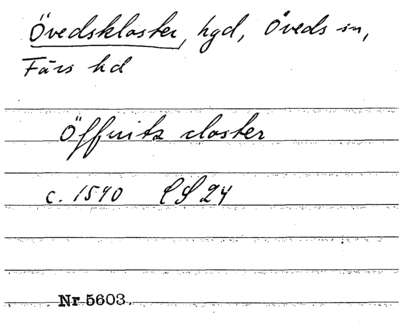 Övedskloster, hgd, Öveds sn,
Färs hd
Öffuits closter
c. 1590 LS 24
Nr 5603.